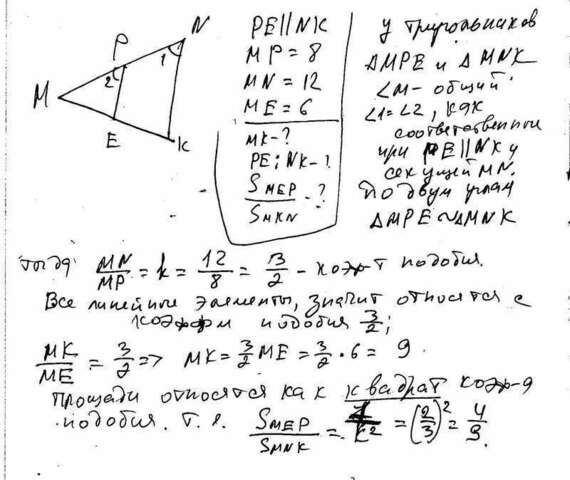 M
P
N
E
K
1
2
PE||NK
MP = 8
MN = 12
ME = 6
MK - ?
PE : NK - ?
S MEP / S MKN - ?
У треугольников
ΔMPE и ΔMNK
∠M - общий
∠1=∠2, как
соответственные
при PE||NK и
секущей MN.
По двум углам
ΔMPE ~ ΔMNK
Тогда MN/MP = k = 12/8 = 3/2 - коэф-т подобия.
Все линейные элементы, значит относятся с
коэффи подобия 3/2;
MK/ME = 3/2 => MK = 3/2 ME = 3/2 · 6 = 9
Площади относятся как квадрат коэф-а
подобия. т.е. S MEP / S MNK = 1/k² = (2/3)² = 4/9.